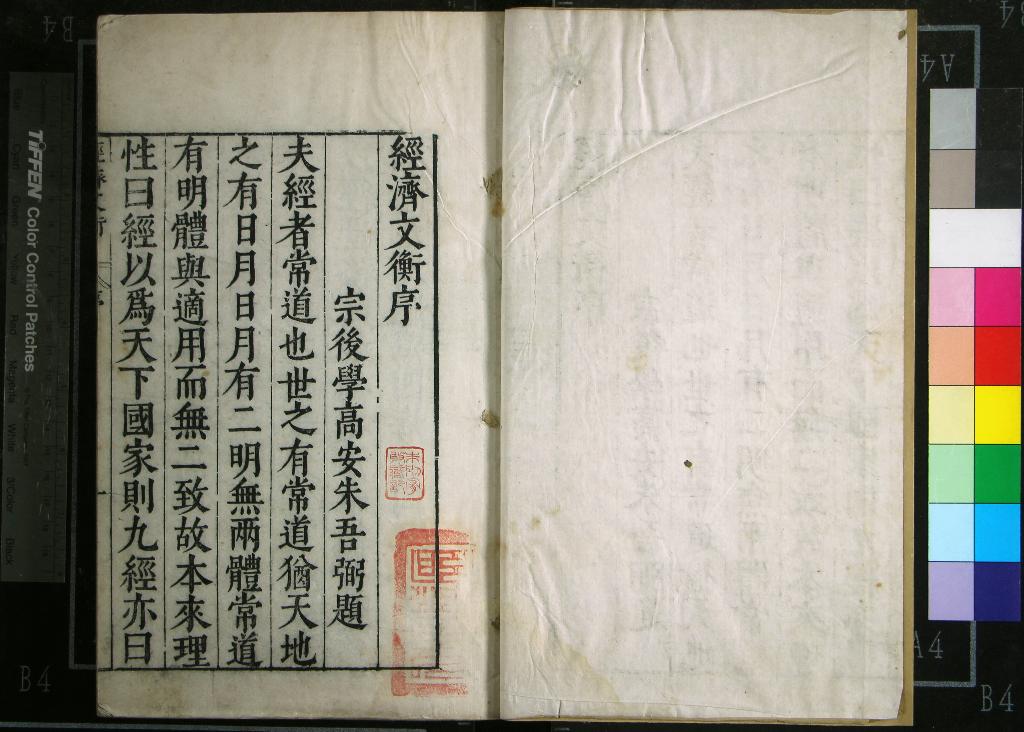 經濟文衡序
宗後學高安朱吾弼題
夫經者常道也世之有常道猶天地
之有日月日月有二明無兩體常道
有明體與適用而無二致故本來理
性曰經以爲天下國家則九經亦曰
TIFFEN Color Control Patches
B4
A4
B4
A4
B4